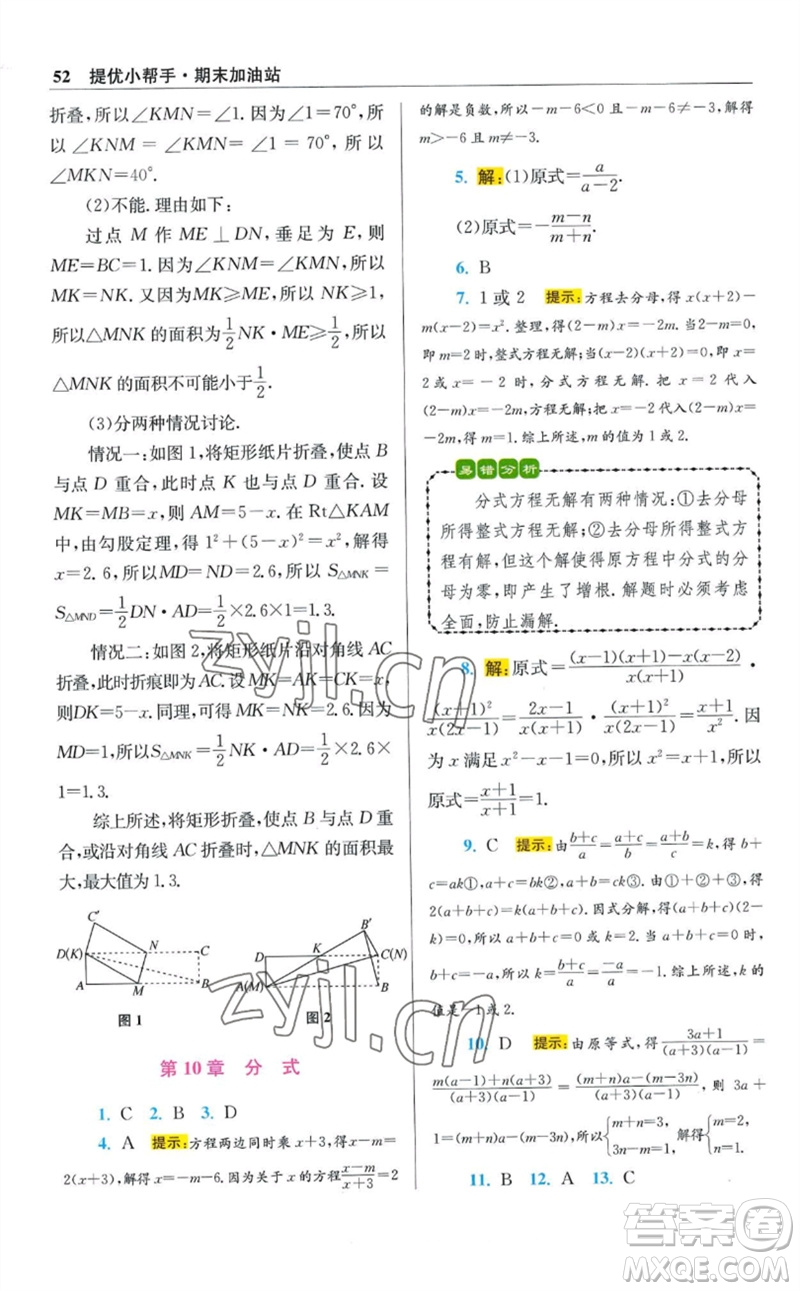 52 提优小帮手·期末加油站
折叠,所以∠KMN=∠1.因为∠1=70°,所
以∠KNM=∠KMN=∠1=70°,所以
∠MKN=40°.
(2)不能.理由如下:
过点 M 作 ME⊥DN,垂足为 E,则
ME=BC=1.因为∠KNM=∠KMN,所以
MK=NK.又因为MK≥ME,所以NK≥1,
所以△MNK的面积为1/2NK·ME≥1/2,所以
△MNK的面积不可能小于1/2.
(3)分两种情况讨论.
情况一:如图1,将矩形纸片折叠,使点B
与点D重合,此时点K也与点D重合.设
MK=MB=x,则AM=5-x.在Rt△KAM
中,由勾股定理,得1²+(5-x)²=x²,解得
x=2.6,所以MD=ND=2.6,所以S△MNK=
S△MND=1/2DN·AD=1/2×2.6×1=1.3.
情况二:如图2,将矩形纸片沿对角线AC
折叠,此时折痕即为AC.设MK=AK=CK=x,
则DK=5-x.同理,可得MK=NK=2.6.因为
MD=1,所以S△MNK=1/2NK·AD=1/2×2.6×
1=1.3.
综上所述,将矩形折叠,使点B与点D重
合,或沿对角线AC折叠时,△MNK的面积最
大,最大值为1.3.
C′
D(K) N C
A M B
图1
B′
D K C(N)
A(M) B
图2
第10章 分 式
1. C 2. B 3. D
4. A 提示:方程两边同时乘x+3,得x-m=
2(x+3),解得x=-m-6.因为关于x的方程(x-m)/(x+3)=2
的解是负数,所以-m-6<0且-m-6≠-3,解得
m>-6且m≠-3.
5. 解:(1)原式=a/(a-2).
(2)原式=-(m-n)/(m+n).
6. B
7. 1或2 提示:方程去分母,得x(x+2)-
m(x-2)=x².整理,得(2-m)x=-2m.当2-m=0,
即m=2时,整式方程无解;当(x-2)(x+2)=0,即x=
2或x=-2时,分式方程无解.把x=2代入
(2-m)x=-2m,方程无解;把x=-2代入(2-m)x=
-2m,解得m=1.综上所述,m的值为1或2.
易错分析
分式方程无解有两种情况:①去分母
所得整式方程无解;②去分母所得整式方
程有解,但这个解能使得原方程中分式的分
母为零,即产生了增根.解题时必须考虑
全面,防止漏解.
8. 解:原式=((x-1)(x+1)-x(x-2))/(x(x+1))·
(x+1)²/(x(2x-1))=(2x-1)/(x(x+1))·(x+1)²/(x(2x-1))=(x+1)/x².因
为x满足x²-x-1=0,所以x²=x+1,所以
原式=(x+1)/(x+1)=1.
9. C 提示:由(b+c)/a=(a+c)/b=(a+b)/c=k,得b+
c=ak①,a+c=bk②,a+b=ck③.①+②+③,得
2(a+b+c)=k(a+b+c).因式分解,得(a+b+c)(2-
k)=0,所以a+b+c=0或k=2.当a+b+c=0时,
b+c=-a,所以k=(b+c)/a=-a/a=-1.综上所述,k的
值是-1或2.
10. D 提示:由原等式,得(3a+1)/((a+3)(a-1))
=(m(a-1)+n(a+3))/((a+3)(a-1))=((m+n)a-(m-3n))/((a+3)(a-1)),所以3a+
1=(m+n)a-(m-3n),所以{m+n=3, 3n-m=1,解得{m=2, n=1.
11. B 12. A 13. C
zyjl.cn
zyjl.cn
答案卷
MXQE.COM